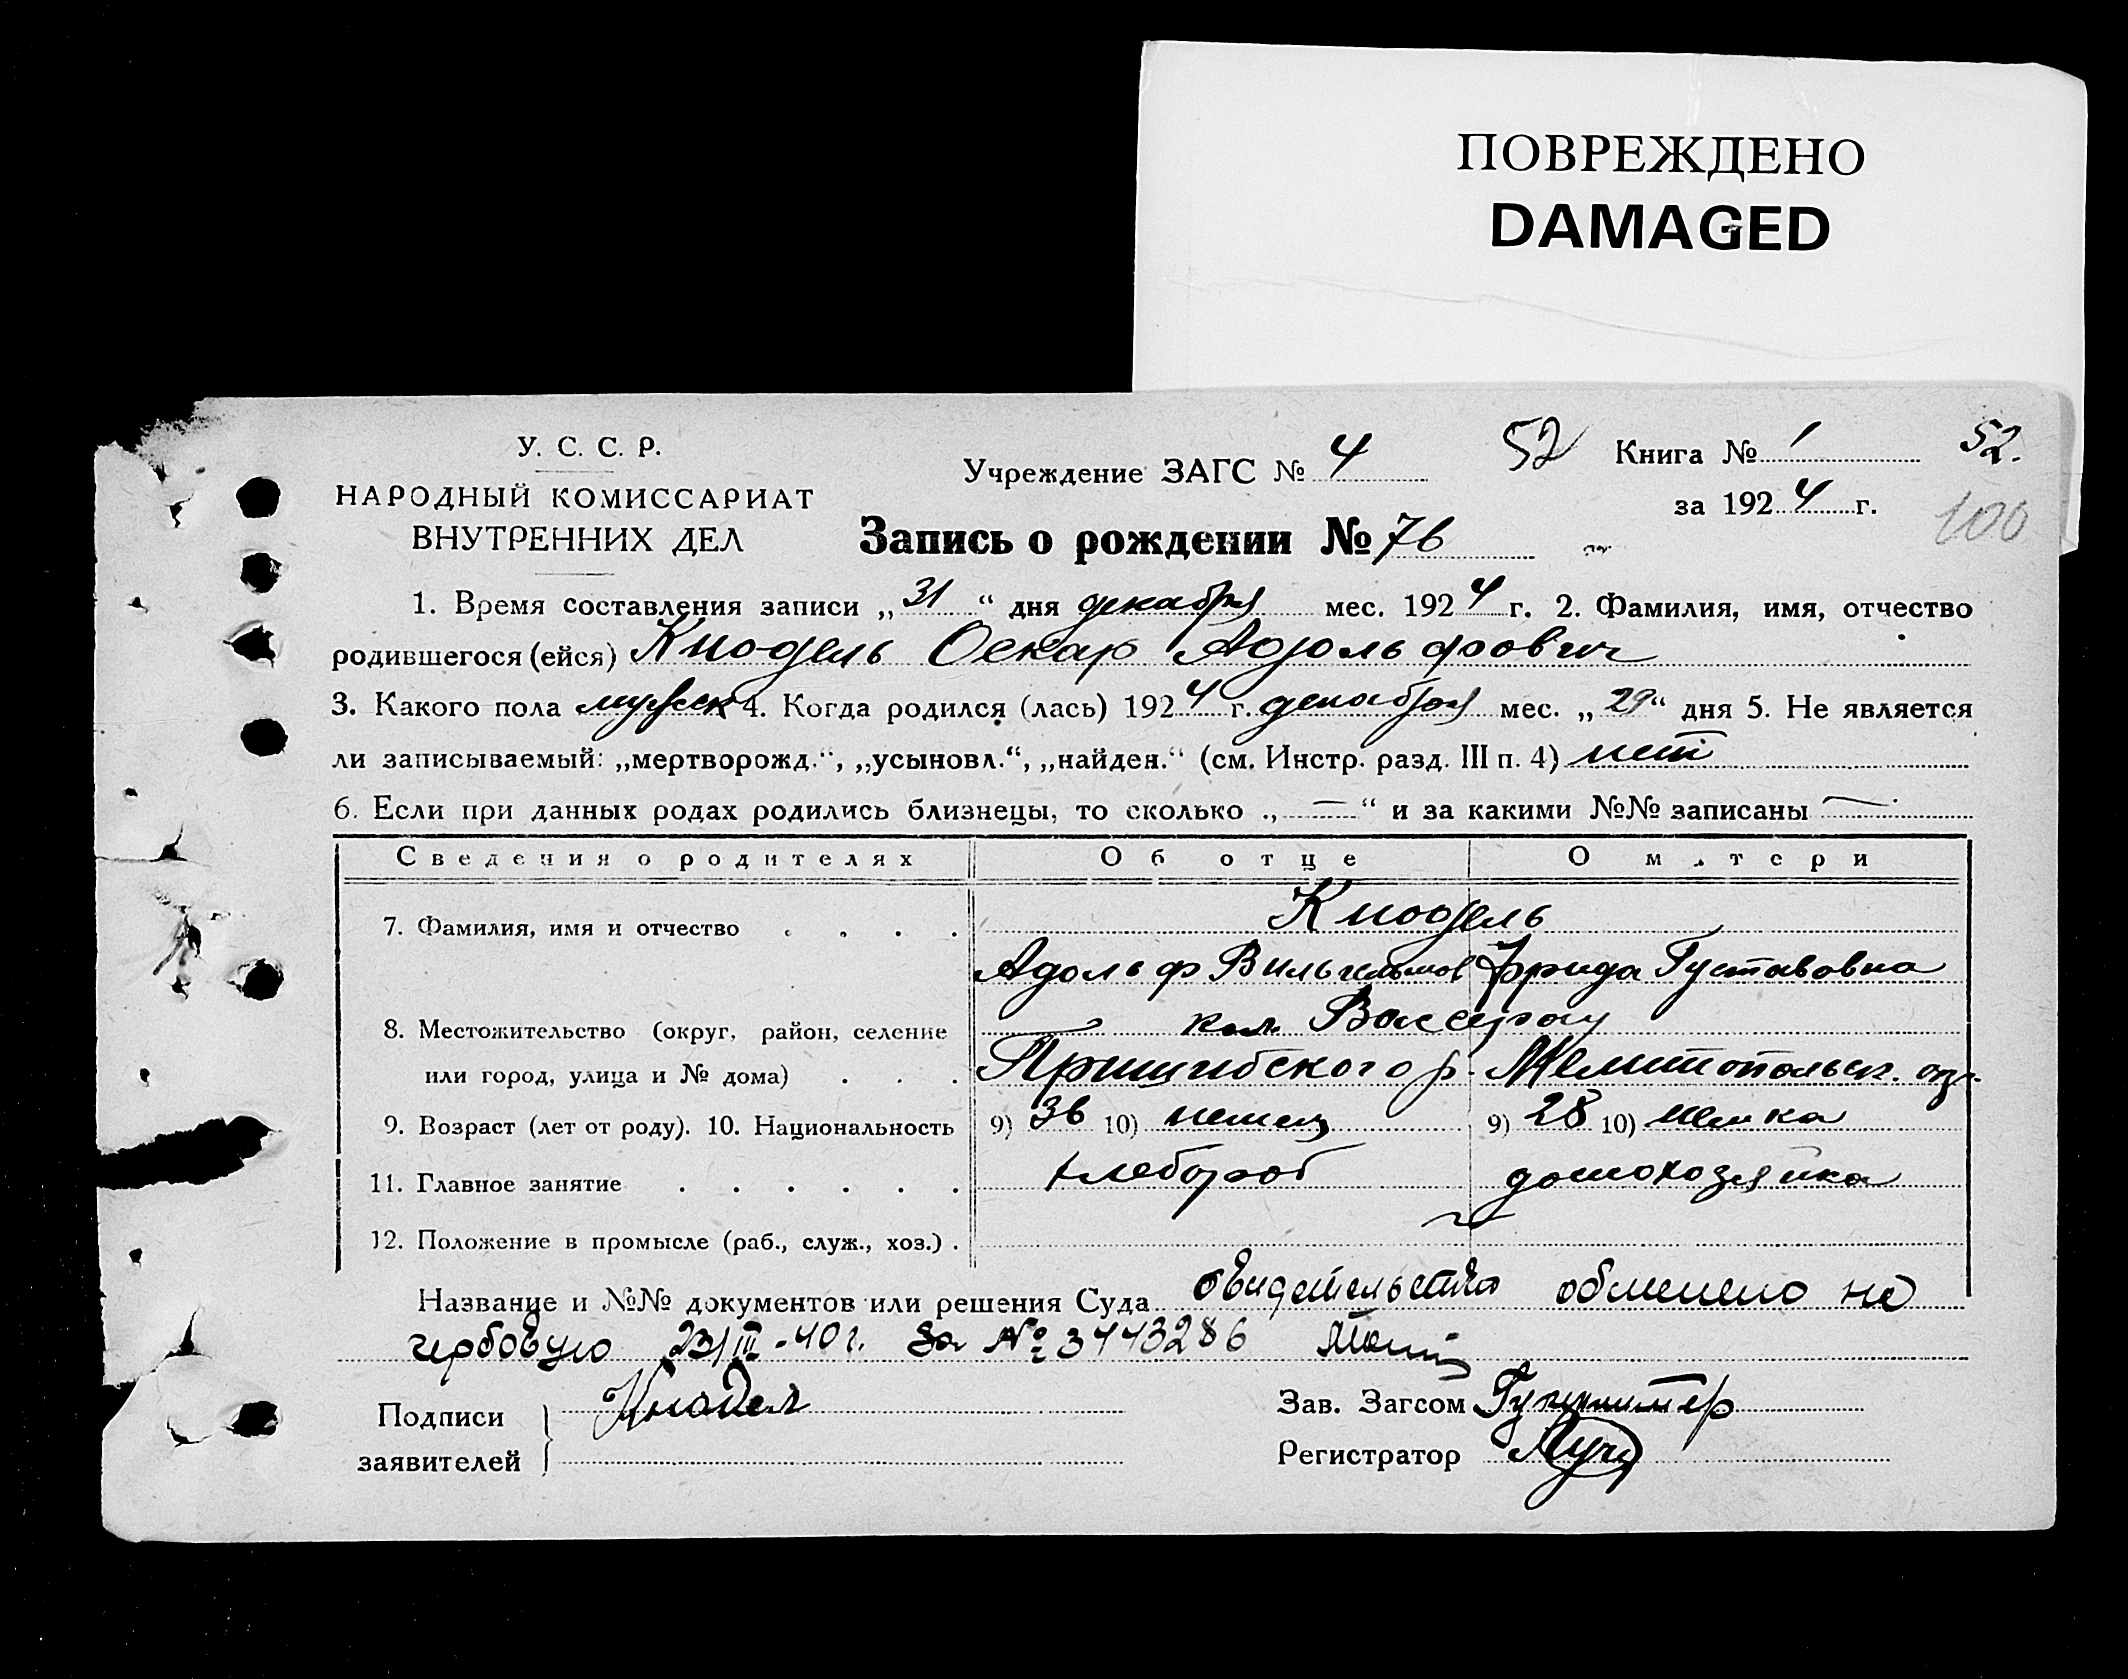 ПОВРЕЖДЕНО
DAMAGED
У. С. С. Р.
НАРОДНЫЙ КОМИССАРИАТ
ВНУТРЕННИХ ДЕЛ
Учреждение ЗАГС № 4
52
Книга № 1
52.
за 1924 г.
100
Запись о рождении № 76
1. Время составления записи „31“ дня декабря мес. 1924 г. 2. Фамилия, имя, отчество
родившегося (ейся) Кнодель Оскар Адольфович
3. Какого пола мужск 4. Когда родился (лась) 1924 г. декабря мес. „29“ дня 5. Не является
ли записываемый: „мертворожд.“, „усыновл.“, „найден.“ (см. Инстр. разд. III п. 4) нет
6. Если при данных родах родились близнецы, то сколько „—“ и за какими №№ записаны —
Сведения о родителях Об отце О матери
7. Фамилия, имя и отчество . . . . Кнодель
Адольф Вильгельмов Фрида Густавовна
8. Местожительство (округ, район, селение — кол. Вассерау
или город, улица и № дома) . . . Пришибского р. Мелитопольск. окр.
9. Возраст (лет от роду). 10. Национальность 9) 36 10) немец 9) 28 10) немка
11. Главное занятие . . . . . . хлебороб домохозяйка
12. Положение в промысле (раб., служ., хоз.) .
Название и №№ документов или решения Суда свидетельство обменено на
гербовую 23/III-40 г. за № 3443286
Подписи Кнодел Зав. Загсом
заявителей Регистратор